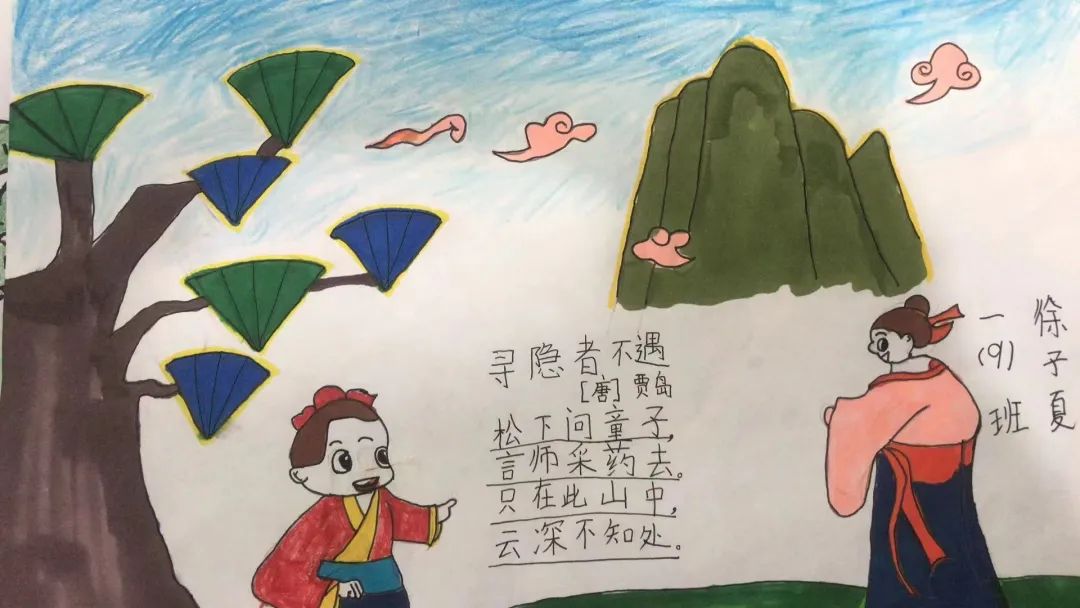 寻隐者不遇
[唐] 贾岛
松下问童子,
言师采药去。
只在此山中,
云深不知处。
徐子夏
一(9)班